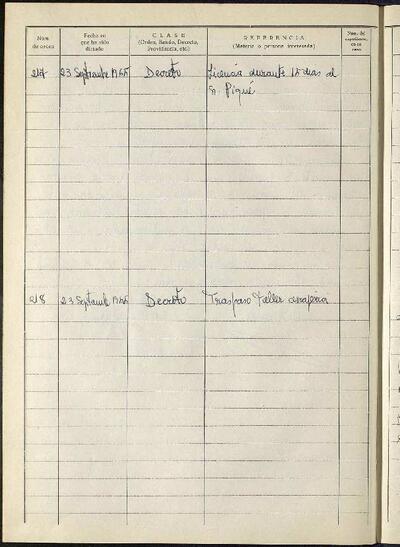 Núm. de orden
Fecha en que ha sido dictado
CLASE (Orden, Bando, Decreto, Providencia, etc.)
REFERENCIA (Materia o persona interesada)
Núm. de expediente, en su caso
217 23 Septiembre 1965 Decreto Licencia durante 15 dias al
Sr. Piqué
218 23 Septiembre 1965 Decreto Traspaso Taller cerrajería